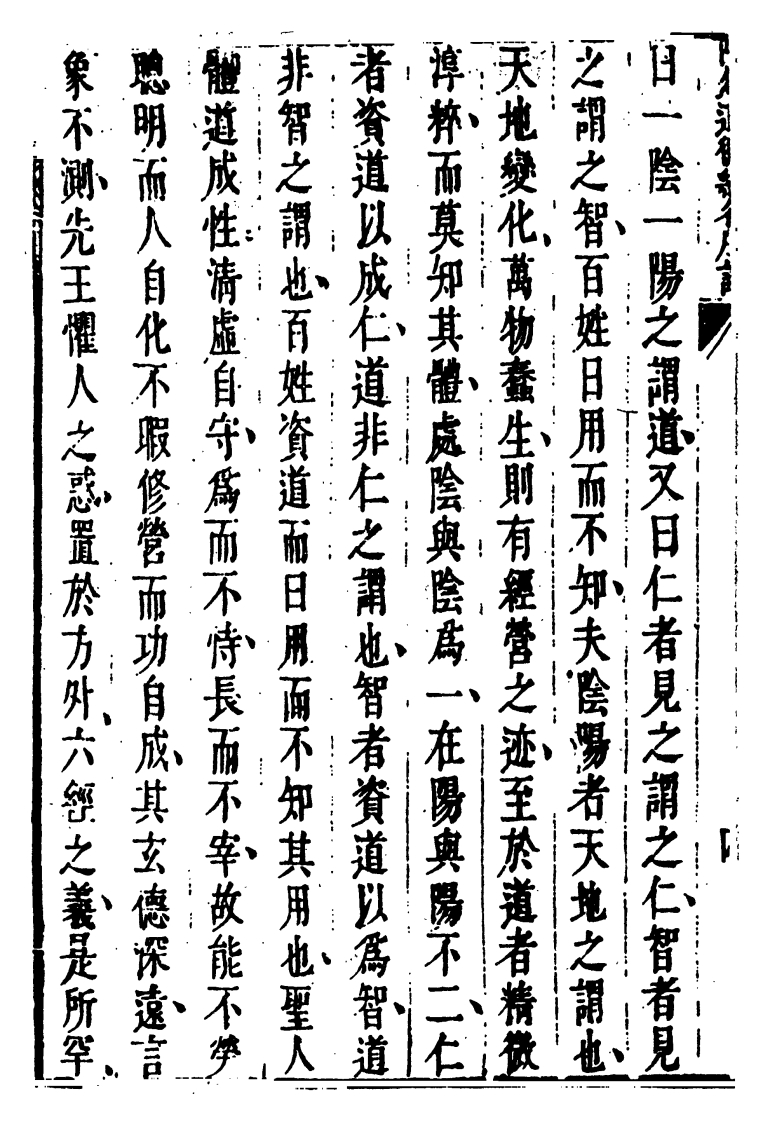 曰一陰一陽之謂道、又曰仁者見之謂之仁、智者見
之謂之智、百姓日用而不知、夫陰陽者天地之謂也、
天地變化、萬物蠢生、則有經營之迹、至於道者精微
淳粹、而莫知其體、處陰與陰爲一、在陽與陽不二、仁
者資道以成仁、道非仁之謂也、智者資道以爲智、道
非智之謂也、百姓資道而日用而不知其用也、聖人
體道成性清虛自守、爲而不恃、長而不宰、故能不勞
聰明而人自化不暇修營而功自成、其玄德深遠、言
象不測、先王懼人之惑、置於方外、六經之義、是所罕、